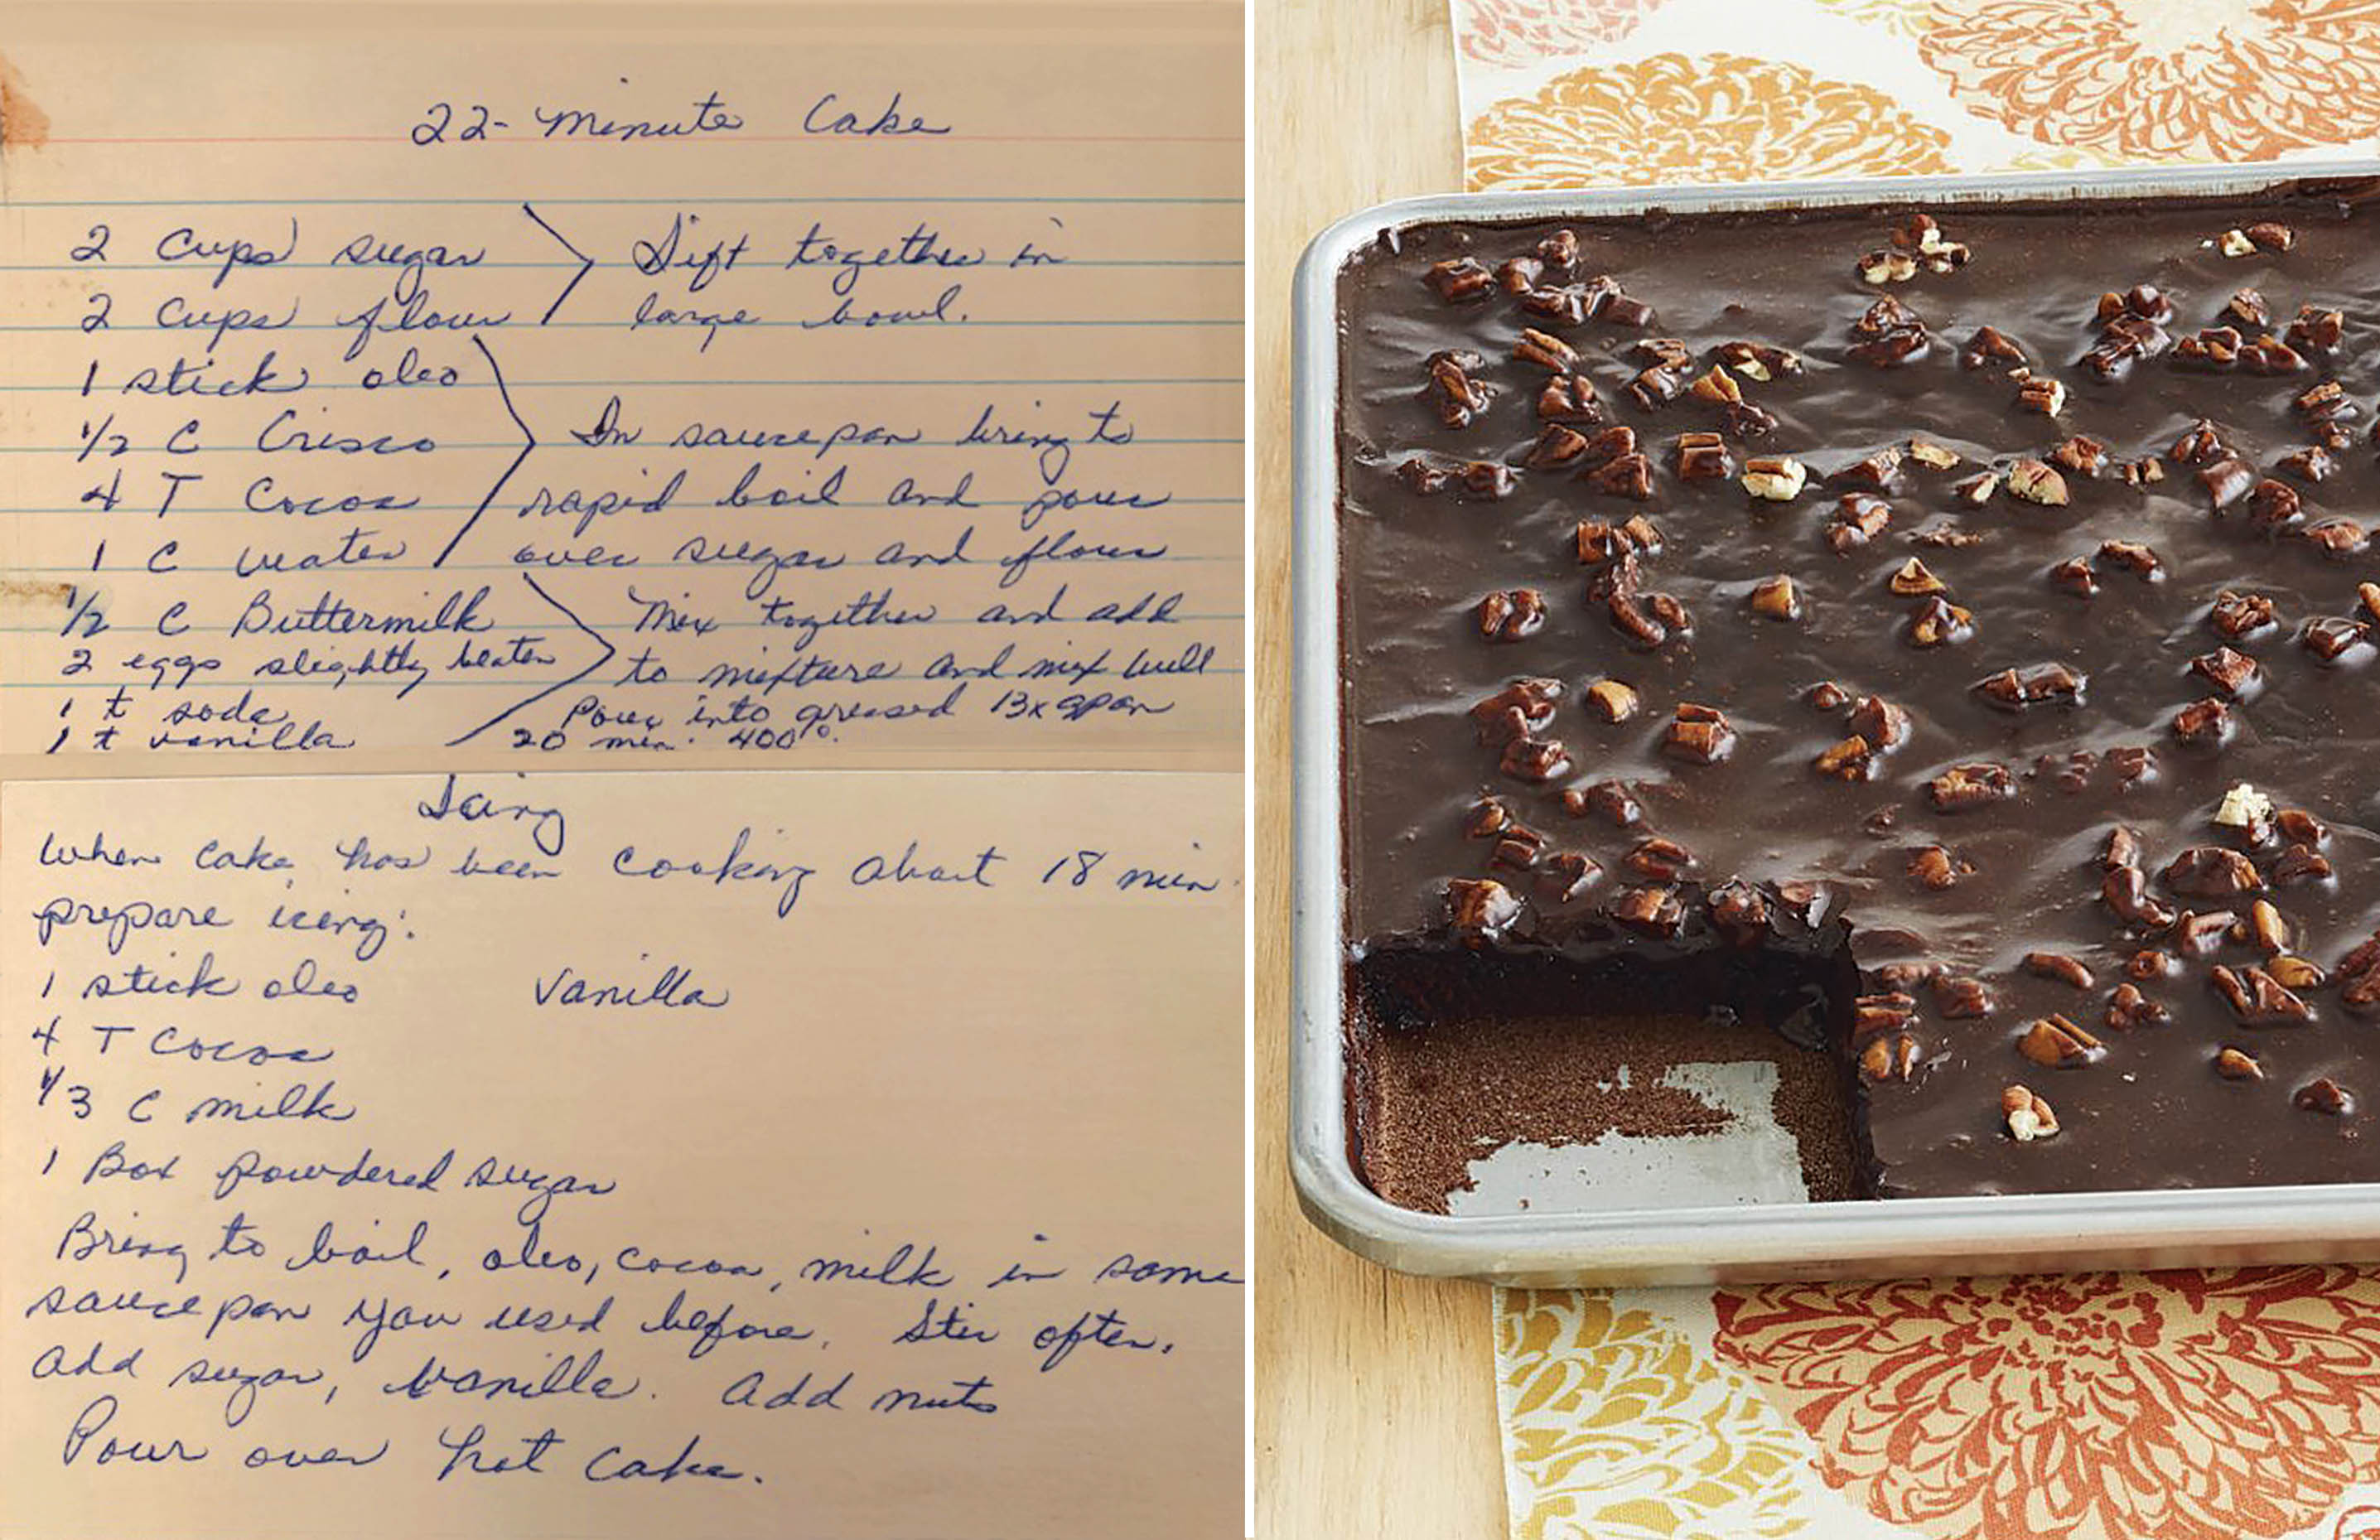 22- Minute Cake
2 Cups sugar
2 Cups flour
Sift together in
large bowl.
1 stick oleo
1/2 C Crisco
4 T Cocoa
1 C water
In saucepan bring to
rapid boil and pour
over sugar and flour
1/2 C Buttermilk
2 eggs slightly beaten
1 t soda
1 t vanilla
Mix together and add
to mixture and mix well
Pour into greased 13x9 pan
20 min. 400°.
Icing
When cake has been cooking about 18 min.
prepare icing:
1 stick oleo
Vanilla
4 T Cocoa
1/3 C milk
1 Box powdered sugar
Bring to boil, oleo, cocoa, milk in same
sauce pan you used before. Stir often.
Add sugar, vanilla. Add nuts
Pour over hot cake.